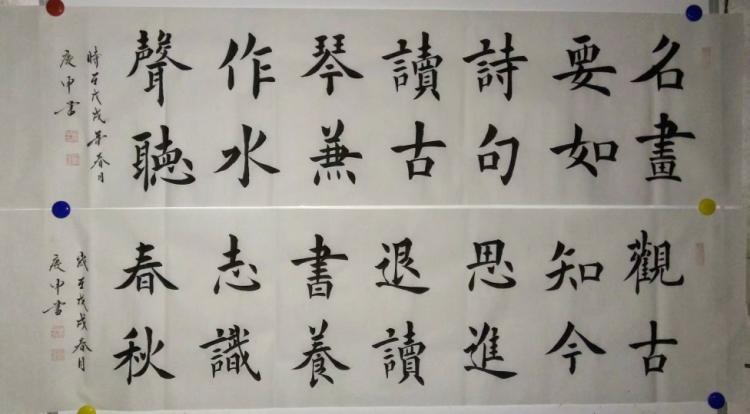 名畫
要如
詩句
讀古
琴兼
作水
聲聽
時在戊戌年春月
庚申書
觀古
知今
思進
退讀
書養
志識
春秋
歲在戊戌春月
庚申書